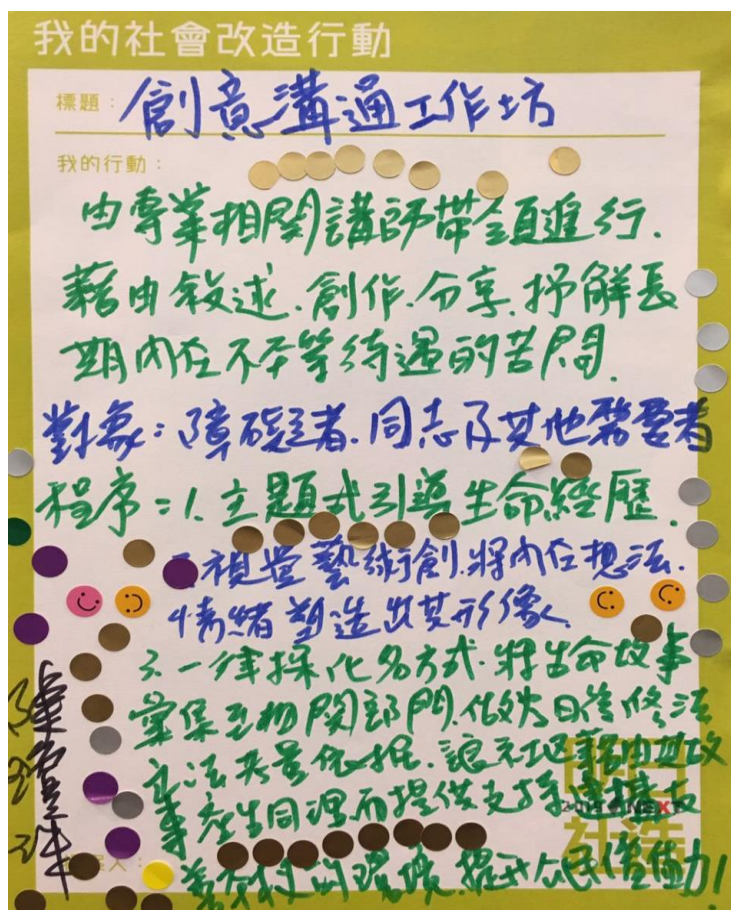 我的社會改造行動
標題：創意溝通工作坊
我的行動：
由專業相關講師帶領進行.
藉由敘述.創作.分享.抒解長
期內在不平等待遇的苦悶.
對象：障礙者.同志及其他需要者
程序：1.主題式引導生命經歷.
視覺藝術創.將內在想法.
情緒塑造出其形像.
3.一律採化名方式.將生命故事
彙集至相關部門.做為日後修法
立法考量依據.讓社地藉由其故
事產生同理而提供支持
善友校的環境.提升公民價值動!
NEXT
社造
陳